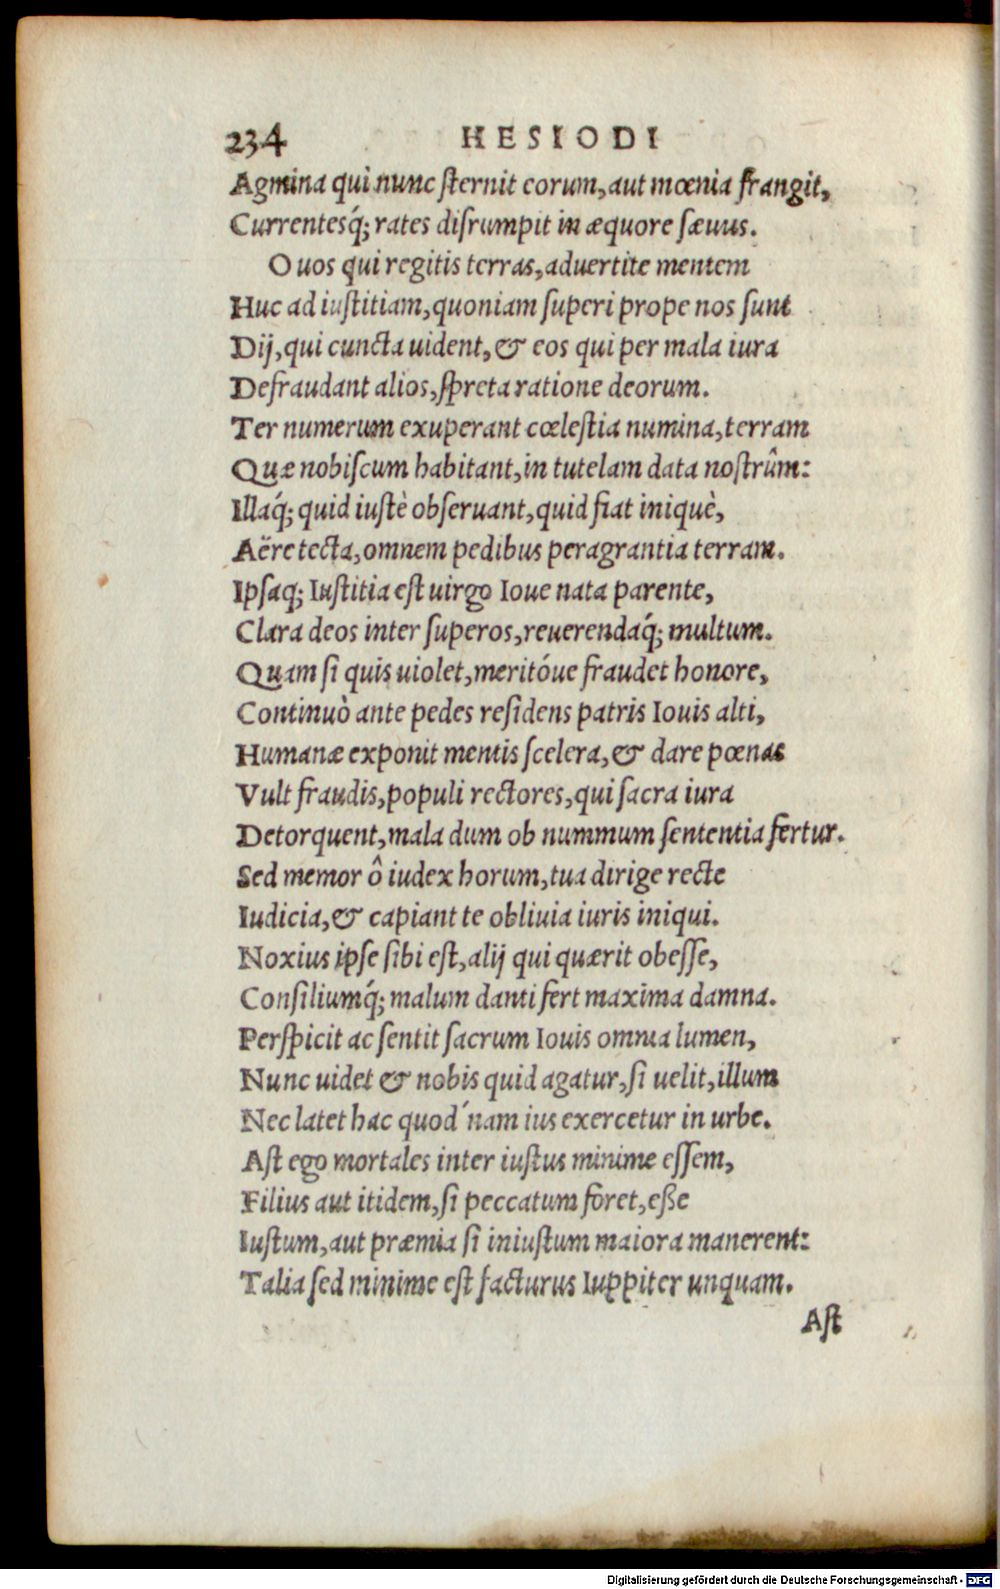 234 HESIODI
Agmina qui nunc ſternit eorum, aut mœnia frangit,
Currentesq́; rates diſrumpit in æquore ſæuus.
O uos qui regitis terras, aduertite mentem
Huc ad iuſtitiam, quoniam ſuperi prope nos ſunt
Dij, qui cuncta uident, & eos qui per mala iura
Defraudant alios, ſpreta ratione deorum.
Ter numerum exuperant cœleſtia numina, terram
Quæ nobiſcum habitant, in tutelam data noſtrûm:
Illaq́; quid iuſtè obſeruant, quid fiat iniquè,
Aëre tecta, omnem pedibus peragrantia terram.
Ipſaq; Iuſtitia eſt uirgo Ioue nata parente,
Clara deos inter ſuperos, reuerendaq́; multum.
Quam ſi quis uiolet, meritóue fraudet honore,
Continuò ante pedes reſidens patris Iouis alti,
Humanæ exponit mentis ſcelera, & dare pœnas
Vult fraudis, populi rectores, qui ſacra iura
Detorquent, mala dum ob nummum ſententia fertur.
Sed memor ô iudex horum, tua dirige recte
Iudicia, & capiant te obliuia iuris iniqui.
Noxius ipſe ſibi eſt, alij qui quærit obeſſe,
Conſiliumq́; malum danti fert maxima damna.
Perſpicit ac ſentit ſacrum Iouis omnia lumen,
Nunc uidet & nobis quid agatur, ſi uelit, illum
Nec latet hac quod´nam ius exercetur in urbe.
Aſt ego mortales inter iuſtus minime eſſem,
Filius aut itidem, ſi peccatum foret, eße
Iuſtum, aut præmia ſi iniuſtum maiora manerent:
Talia ſed minime eſt facturus Iuppiter unquam.
Aſt
Digitalisierung gefördert durch die Deutsche Forschungsgemeinschaft - DFG